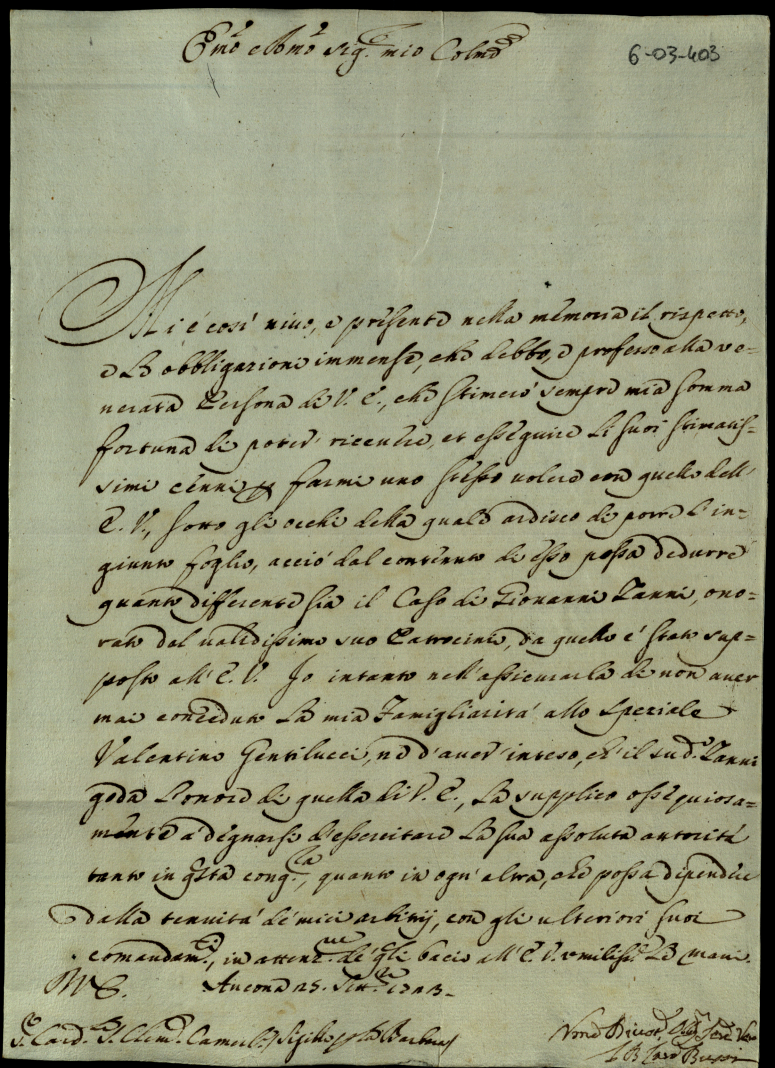 Em̃o e Rm̃o Sig.re mio Colmo
6-03-403
Mi é così viuo, e presente nella memoria il rispetto,
e le obbligazioni immense, che debbo, e professo alla ve-
nerata Persona di V. E., che stimerò sempre mia somma
fortuna di poter' riceuere, et esseguire li suoi stimatis-
simi cenni, e farmi uno stesso volere con quello dell'
E. V., sotto gli occhi della quale ardisco di porre l'in-
giunto foglio, acciò dal contenuto di esso possa dedurre
quanto differente sia il Caso di Giovanni Zanni, ono-
rato del validissimo suo Patrocinio, da quello é stato sup-
posto all'E. V. Io intanto nell'assicurarla di non auer
mai conceduto la mia Famigliarità allo Speziale
Valentino Gentilucci, nè d'auer' inteso, ch'il sud.o Zanni
goda l'onore di quella di V. E., la supplico ossequiosa-
mente a degnarsi d'essercitare la sua assoluta autorità
tanto in q̃sta cong.ra, quanto in ogn'altra, che possa dipendere
dalla tenuità de' miei arbitrij, con gli ulteriori suoi
comandam.ti, in attenz.ne de' q̃li bacio all'E. V. umiliss.e le mani.
Ancona 25.
S.r Card. S. Clem.te